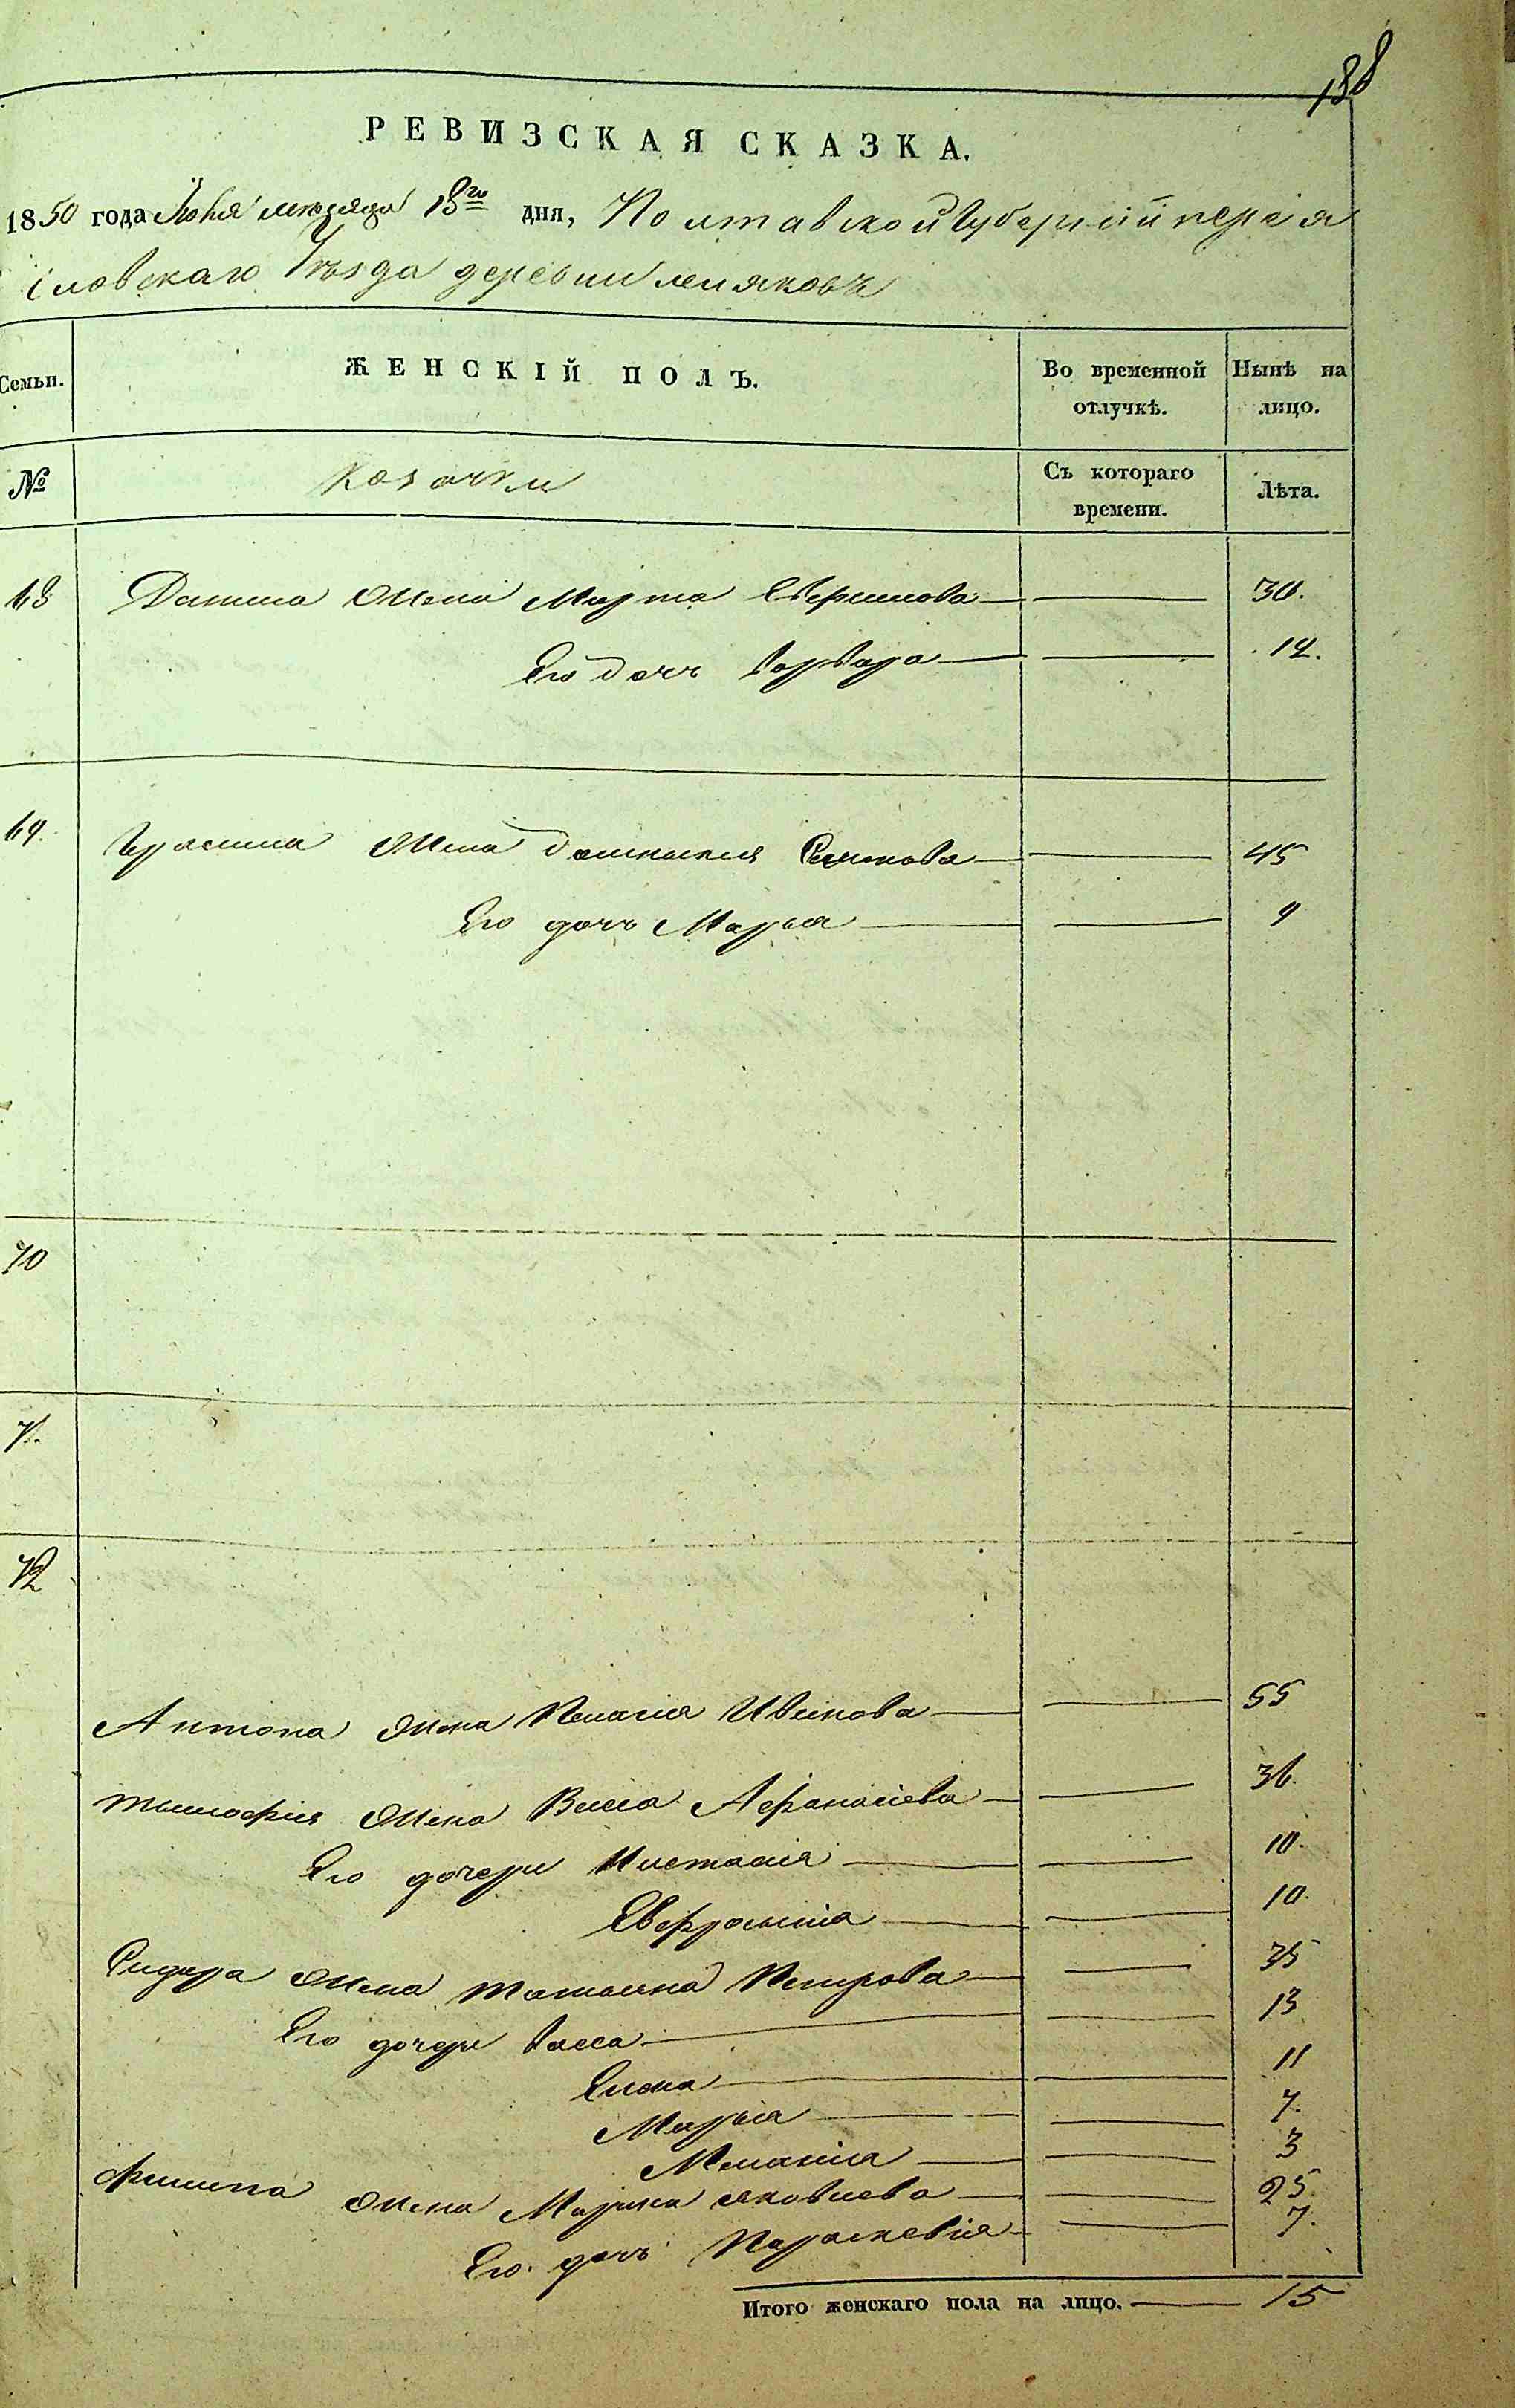 138
РЕВИЗСКАЯ СКАЗКА.
1850 года Іюня месяца 18го дня, Полтавской Губерніи перея
словскаго Уезда деревни
Семьи. ЖЕНСКІЙ ПОЛЪ. Во временной отлучкѣ. Нынѣ на лицо.
№ козачки Съ котораго времени. Лѣта.
68 Данила жена Марта 30.
Его дочь Варвара 12.
69. Герасима жена Домникия Семенова 45
Его дочь Марья 9
70
71.
72
Антона жена Пелагия Иванова 55
Тимофея жена Васса Афанасіева 36.
Его дочери Анастасія 10.
Евфросинія 10.
Сидора жена Татьяна Петрова 35
Его дочери Васса 13
Елена 11
Марья 7.
Меланія 3
Филипа жена Марина Яковлева 25.
Его дочь Параскевія 7.
Итого женскаго пола на лицо. 15